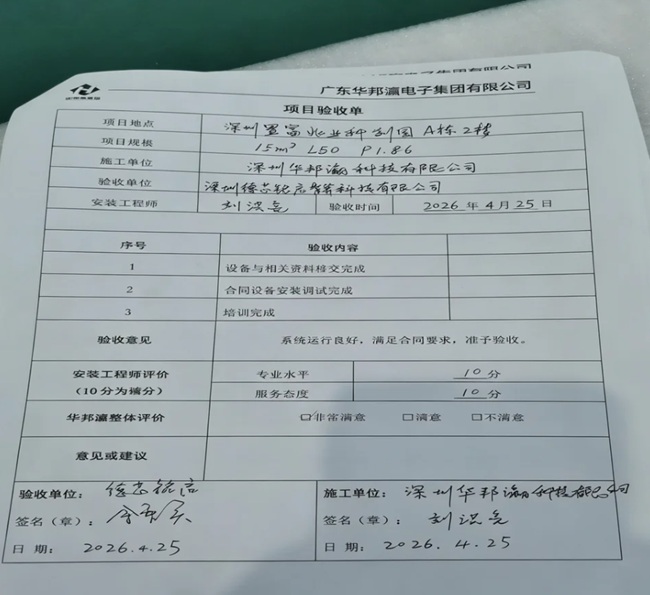 广东华邦瀛电子集团有限公司
项目验收单
项目地点 深圳置富兆业科创园A栋2楼
项目规模 15m² L50 P1.86
施工单位 深圳华邦瀛科技有限公司
验收单位 深圳德芯锐启智算科技有限公司
安装工程师 刘洪亮 验收时间 2026年4月25日
序号 验收内容
1 设备与相关资料移交完成
2 合同设备安装调试完成
3 培训完成
验收意见 系统运行良好，满足合同要求，准予验收。
安装工程师评价 专业水平 10分
(10分为满分) 服务态度 10分
华邦瀛整体评价 ☑非常满意 □满意 □不满意
意见或建议
验收单位： 施工单位：深圳华邦瀛科技有限公司
签名（章）： 签名（章）：刘洪亮
日 期：2026.4.25 日 期：2026.4.25